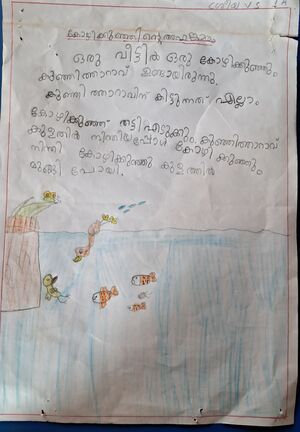 ശ്രീയ V S 1 A
കോഴിക്കുഞ്ഞിന്റെ അഹങ്കാരം
ഒരു വീട്ടിൽ ഒരു കോഴിക്കുഞ്ഞും
കുഞ്ഞിത്താറാവ് ഉണ്ടായിരുന്നു.
കുഞ്ഞിത്താറാവിന് കിട്ടുന്നത് എല്ലാം
കോഴിക്കുഞ്ഞ് തട്ടിഎടുക്കും. കുഞ്ഞിത്താറാവ്
കുളത്തിൽ നീന്തിയപ്പോൾ കോഴി കുഞ്ഞും
നീന്തി കോഴിക്കുഞ്ഞു കുളത്തിൽ
മുങ്ങി പോയി.